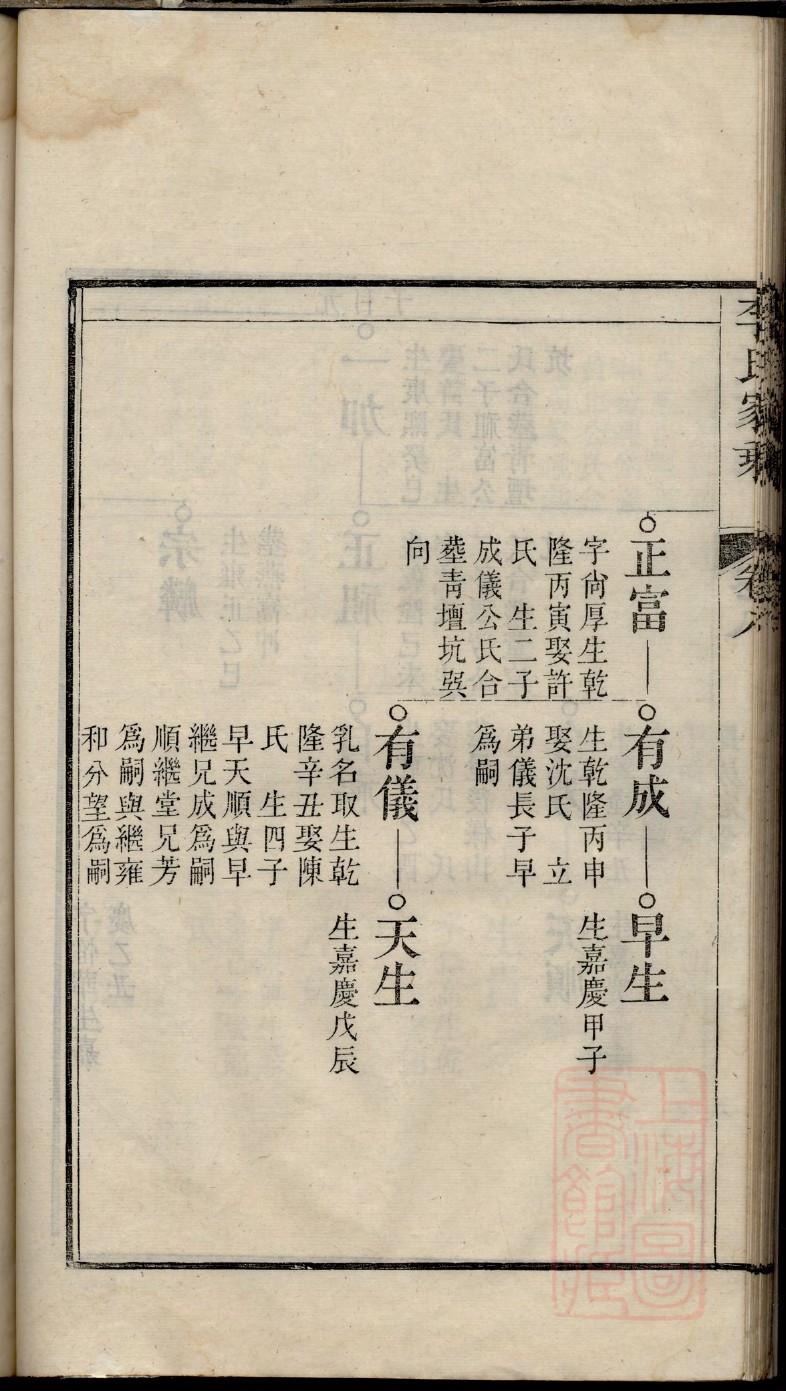 李氏家乘
卷六
正富
字尙厚生乾
隆丙寅娶許
氏 生二子
成儀公氏合
塟靑壇坑巽
向
有成
生乾隆丙申
娶沈氏 立
弟儀長子早
爲嗣
早生
生嘉慶甲子
有儀
乳名取生乾
隆辛丑娶陳
氏 生四子
早天順與早
繼兄成爲嗣
順繼堂兄芳
爲嗣與繼雍
和分望爲嗣
天生
生嘉慶戊辰
上海圖
書館藏